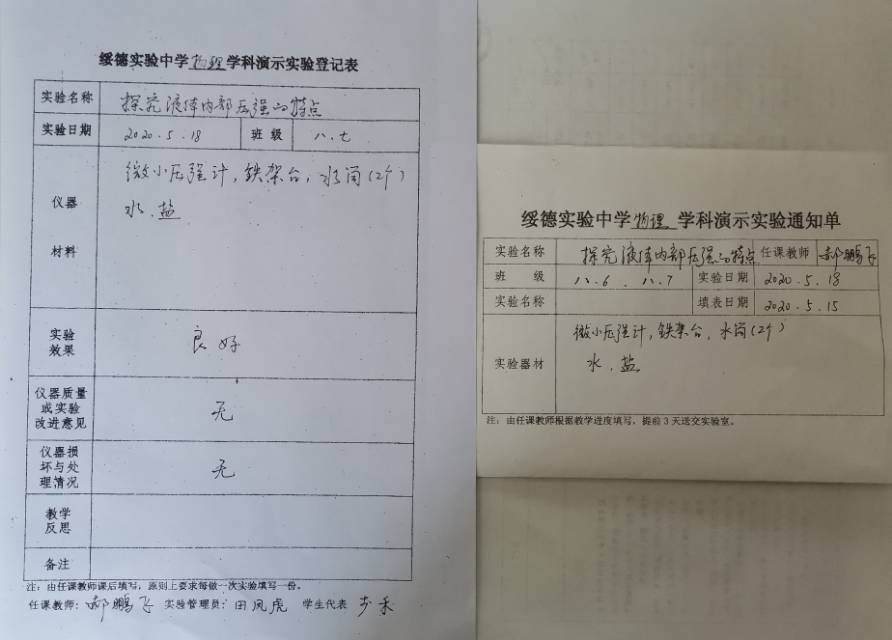 绥德实验中学物理学科演示实验登记表
实验名称 探究液体内部压强的特点
实验日期 2020.5.18 班级 八.七
仪器 微小压强计，铁架台，水筒（2个）
水、盐
材料
实验 良好
效果
仪器质量
或实验 无
改进意见
仪器损
坏与处 无
理情况
教学
反思
备注
注：由任课教师课后填写，原则上要求每做一次实验填写一份。
任课教师：郝鹏飞 实验管理员：田凤虎 学生代表
绥德实验中学物理学科演示实验通知单
实验名称 探究液体内部压强的特点 任课教师 郝鹏飞
班 级 八.6 八.7 实验日期 2020.5.18
实验名称 填表日期 2020.5.15
微小压强计，铁架台，水筒（2个）
实验器材 水、盐
注：由任课教师根据教学进度填写，提前3天送交实验室。